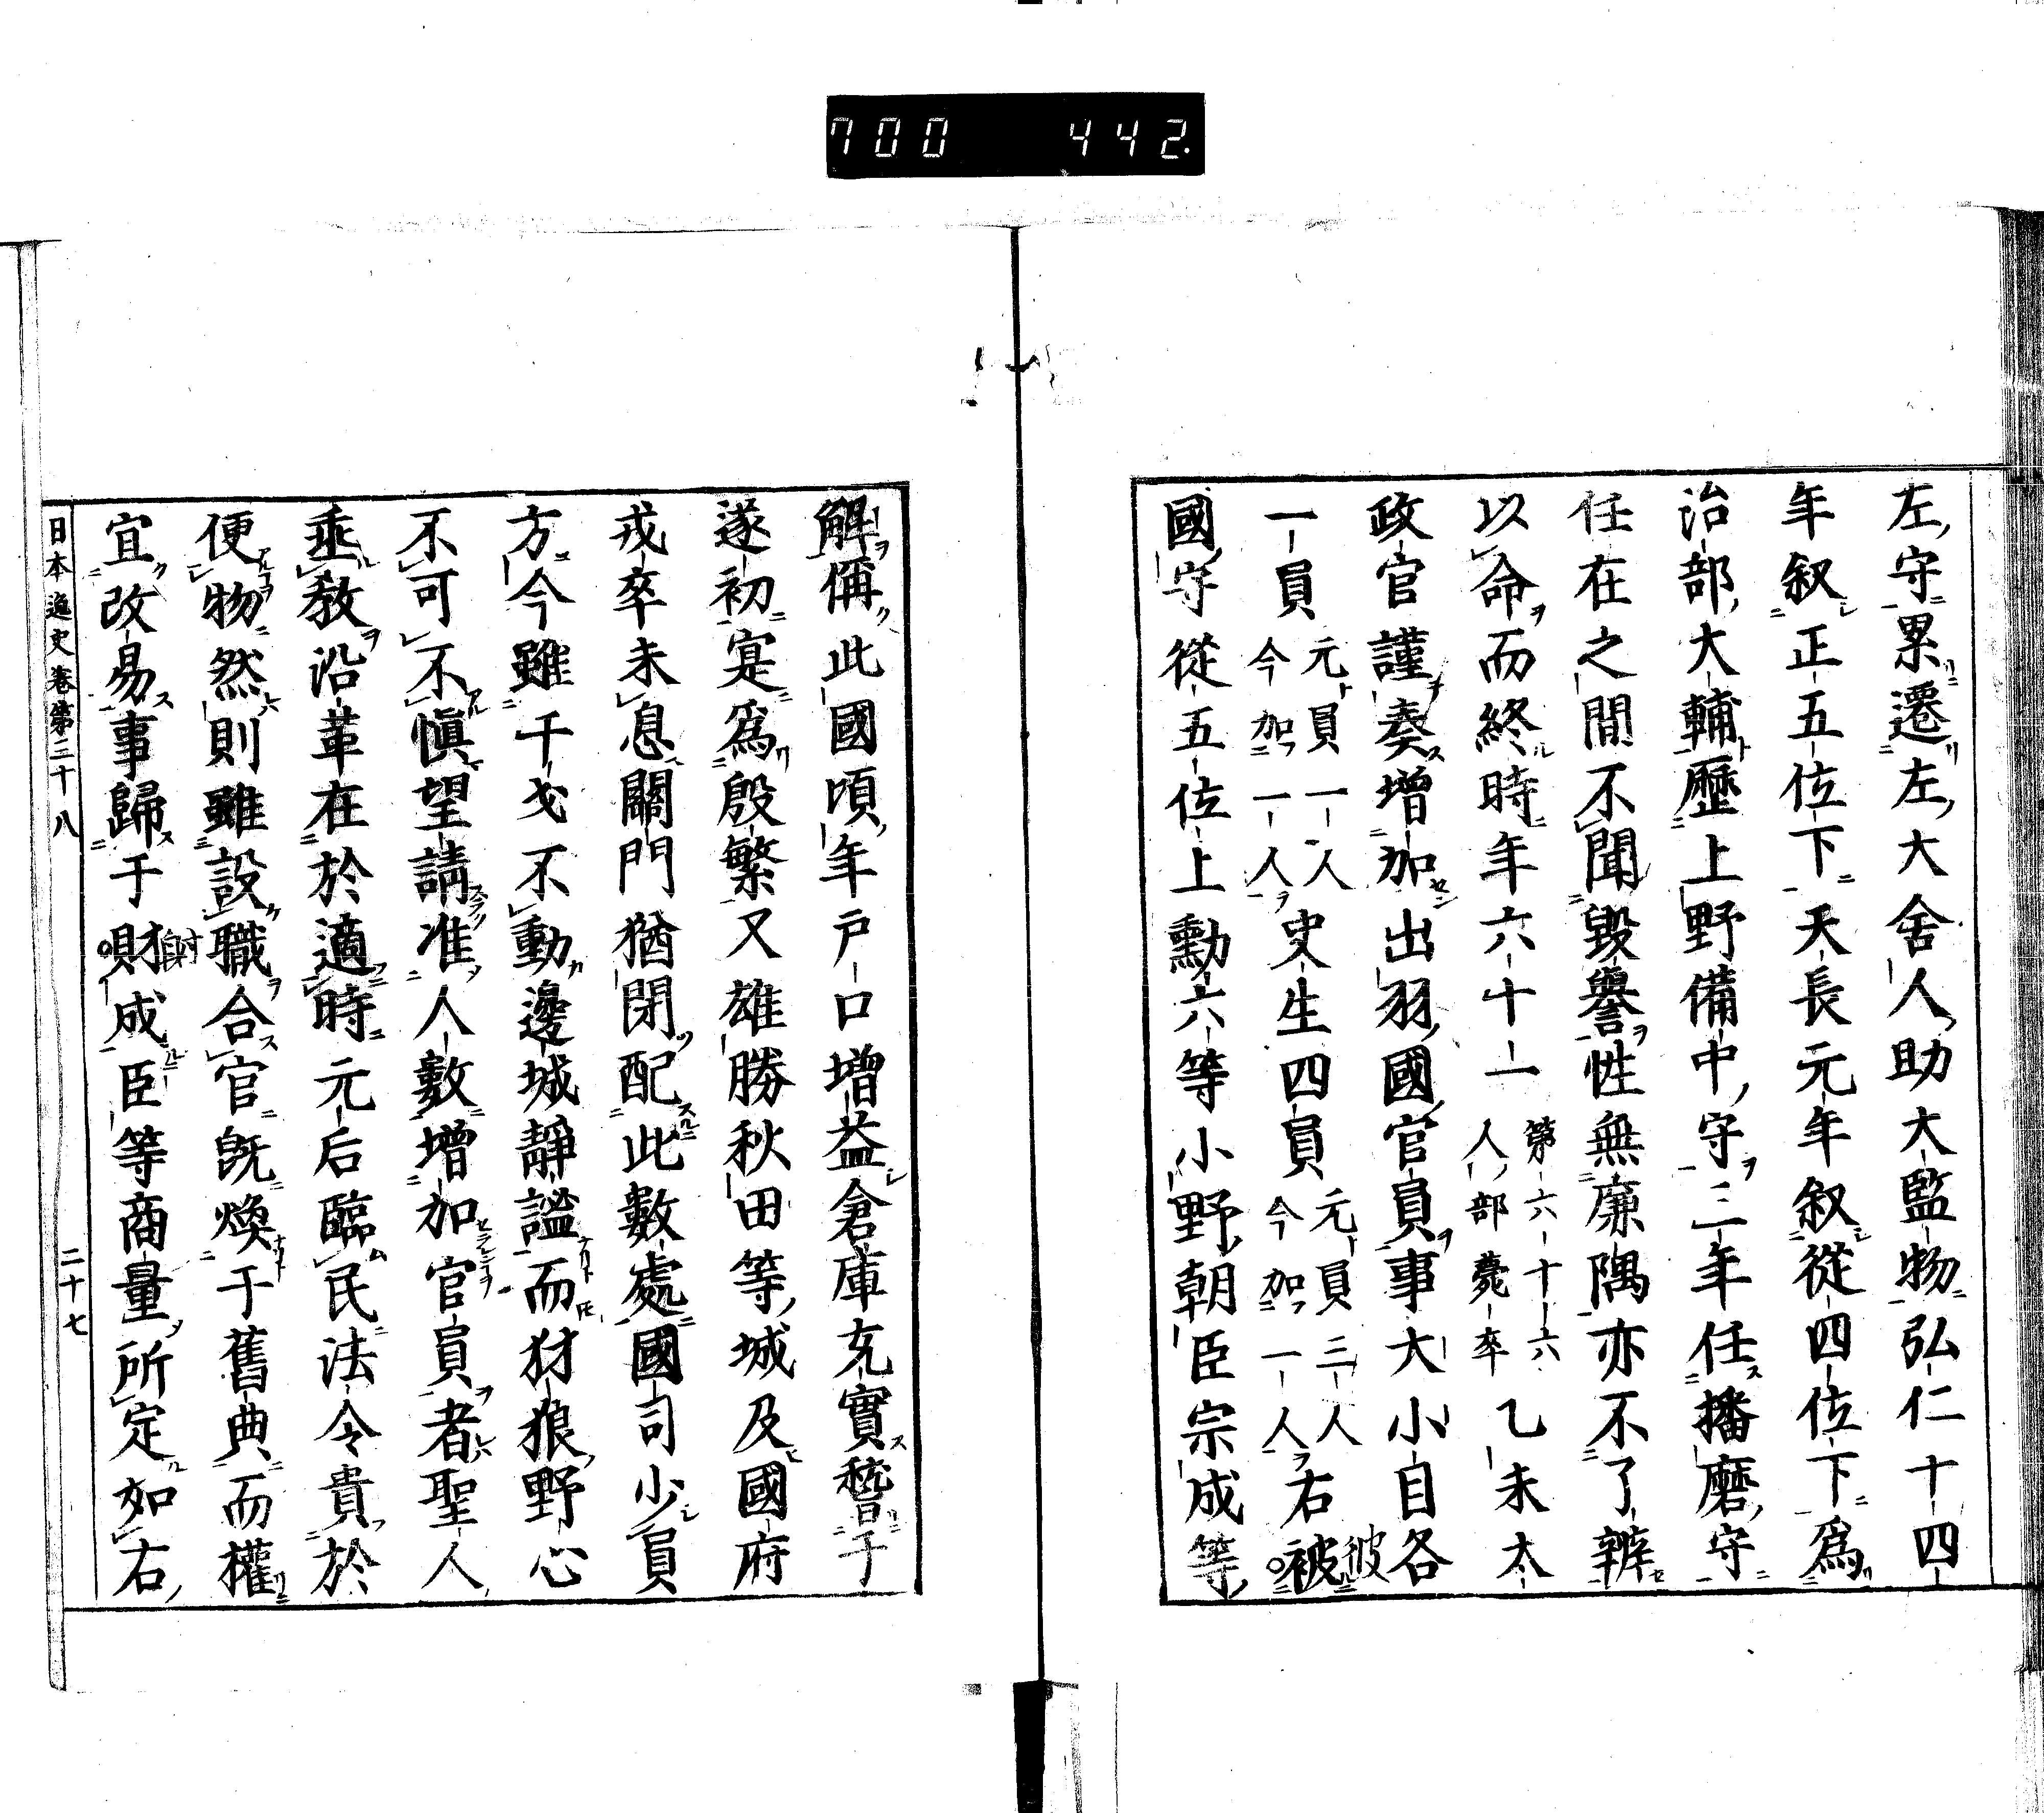 700 442.
左守累遷左大舍人助大監物弘仁十四
年叙正五位下天長元年叙從四位下爲
治部大輔歷上野備中守二年任播磨守
任在之間不聞毀譽性無廉隅亦不了辨
以命而終時年六十一第六十六人部薨卒乙未太
政官謹奏增加出羽國官員事大小目各
一員元員一人今加一人史生四員元員三人今加一人右被彼
國守從五位上勳六等小野朝臣宗成等
解偁此國頃年戸口增益倉庫充實稽于
遂初寔爲殷繁又雄勝秋田等城及國府
戎卒未息關門猶閉配此數處國司少員
方今雖干戈不動邊城靜謐而犲狼野心
不可不愼望請准人數增加官員者聖人
垂教沿革在於適時元后臨民法令貴於
便物然則雖設職合官旣煥于舊典而權
宜改易事歸于財成臣等商量所定如右
日本逸史卷第三十八 二十七